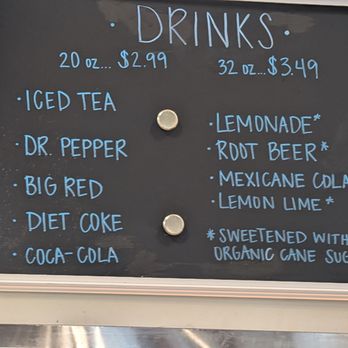 · DRINKS ·
20 oz... $2.99 32 oz... $3.49
· ICED TEA
· DR. PEPPER
· BIG RED
· DIET COKE
· COCA-COLA
· LEMONADE*
· ROOT BEER*
· MEXICANE COLA
· LEMON LIME*
* SWEETENED WITH
ORGANIC CANE SUG